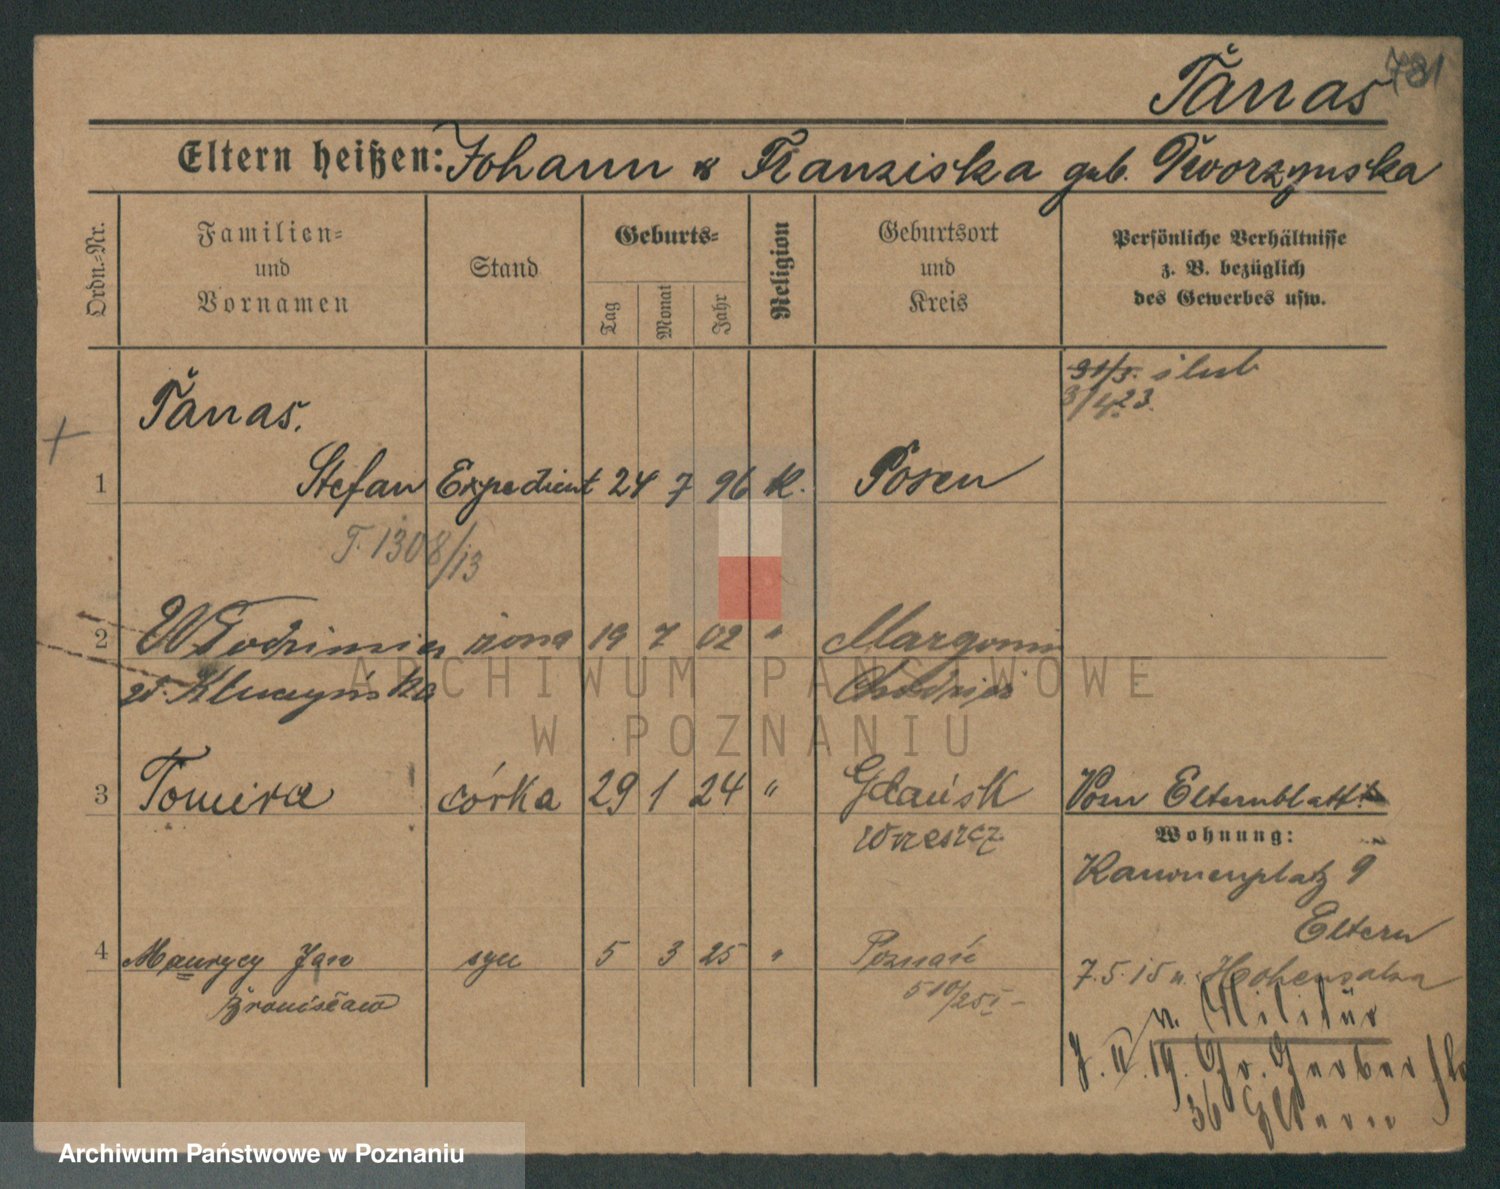 781
Tanas
Eltern heißen: Johann & Franziska geb. Tworzynska
Ordn.-Nr.
Familien=
und
Vornamen
Stand
Geburts=
Tag
Monat
Jahr
Religion
Geburtsort
und
Kreis
Persönliche Verhältnisse
z. B. bezüglich
des Gewerbes usw.
ślub
3/4 23.
Tanas.
1 Stefan Expedient 24 7 96 K. Posen
T. 1308/13
2 Włodzimira żona 19 7 02 " Margonin
zd. Kluczyńska Chodzież
3 Tomira córka 29 1 24 " Gdańsk Vom Elternblatt
Wrzeszcz. Wohnung:
Kanonenplatz 9
Eltern
4 Maurycy Jan syn 5 3 25 " Poznań
7.5.15 n. Hohensalza
Bronisław 510/25
n. Militär
Gr. Gerber
36 Eltern
ARCHIWUM PAŃSTWOWE
W POZNANIU
Archiwum Państwowe w Poznaniu